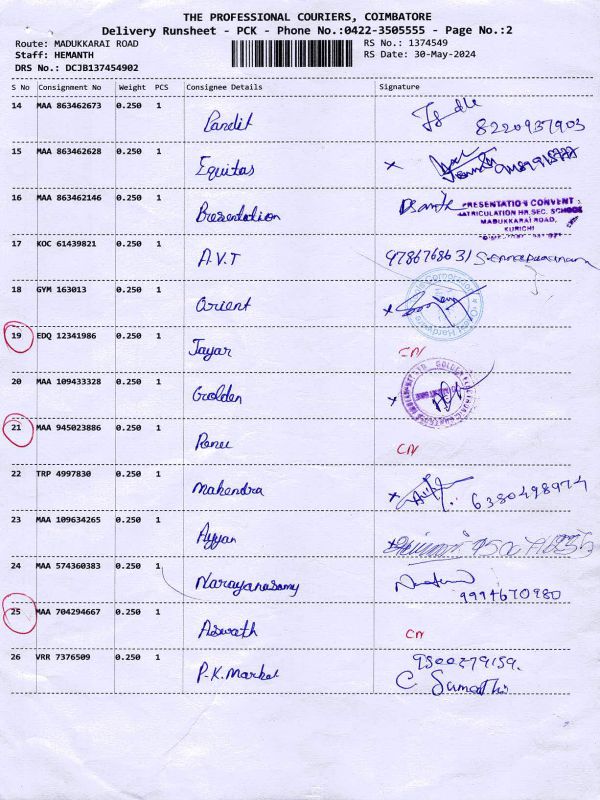 THE PROFESSIONAL COURIERS, COIMBATORE
Delivery Runsheet - PCK - Phone No.:0422-3505555 - Page No.:2
Route: MADUKKARAI ROAD RS No.: 1374549
Staff: HEMANTH RS Date: 30-May-2024
DRS No.: DCJB137454902
S No Consignment No Weight PCS Consignee Details Signature
14 MAA 863462673 0.250 1
Pandit 8220937903
15 MAA 863462628 0.250 1
Equitas
16 MAA 863462146 0.250 1
Presentation
PRESENTATION CONVENT
MATRICULATION HR.SEC. SCHOOL
MADUKKARAI ROAD,
KURICHI
17 KOC 61439821 0.250 1
A.V.T 9786768631
18 GYM 163013 0.250 1
Orient
19 EDQ 12341986 0.250 1
Jayar CN
20 MAA 109433328 0.250 1
Golden
21 MAA 945023886 0.250 1
Renu CN
22 TRP 4997830 0.250 1
Mahendra 6380498974
23 MAA 109634265 0.250 1
Ayyan
24 MAA 574360383 0.250 1
Narayanasamy 9994670980
25 MAA 704294667 0.250 1
Aswath CN
26 VRR 7376509 0.250 1
P.K.Market 9500279159.
C Sumathi